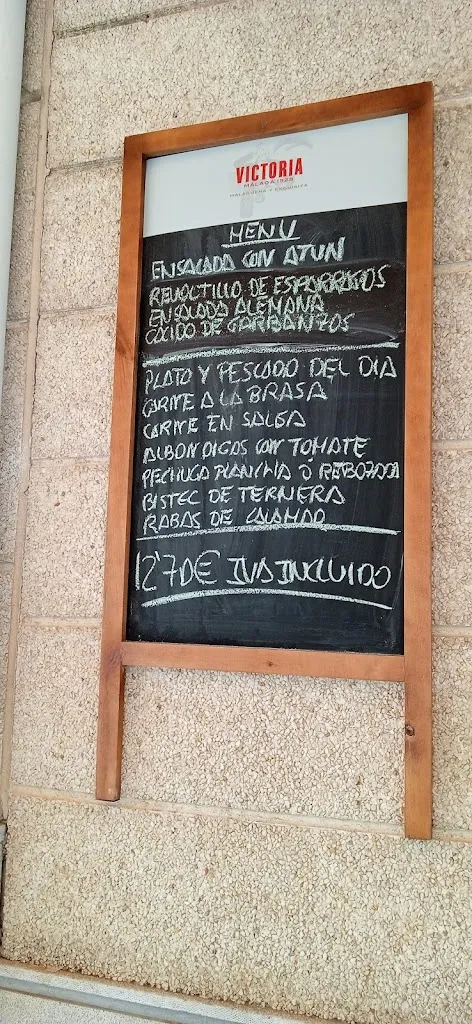 VICTORIA
MÁLAGA 1928
MALAGUEÑA Y EXQUISITA
MENU
ENSALADA CON ATUN
REVOLTILLO DE ESPARRAGOS
ENSALADA ALEMANA
COCIDO DE GARBANZOS
PLATO Y PESCADO DEL DIA
CARNE A LA BRASA
CARNE EN SALSA
ALBONDIGAS CON TOMATE
PECHUGA PLANCHA Ó REBOZADA
BISTEC DE TERNERA
RABAS DE CALAMAR
12'70€ IVA INCLUIDO